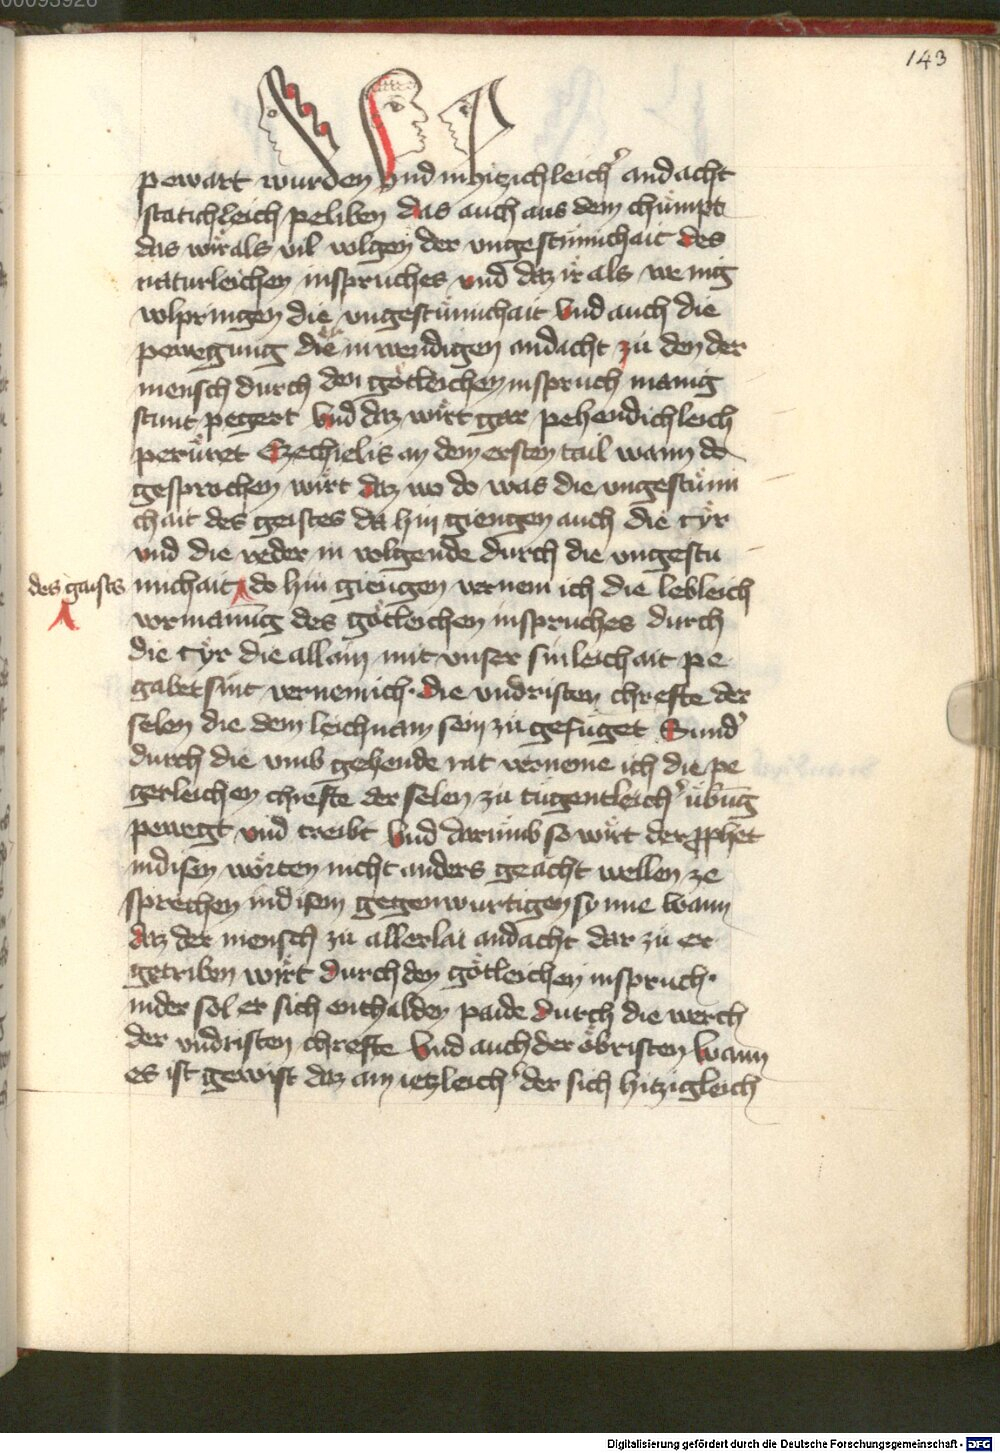 00093926
143
pewart wurden vnd in hitzichleicher andacht
statichleich peliben das auch aus dem chumpt
das wir als vil volgen der vngestumichait des
naturleichen inspruches vnd daz ir als wenig
volpringen die vngestumichait vnd auch die
pewegung die inwendigen andacht zu den der
mensch durch den gotleichen inspruch manig
stunt pegert vnd daz wirt gar pehendichleich
peruret Ezechielis an dem ersten tail wann do
gesprochen wirt daz wo do was die vngestumi
chait des geistes da hin giengen auch die tyr
vnd die reder in volgende durch die vngestu
des gaists
michait do hin giengen vernem ich die lebleich
vermanung des gotleichen inspruches durch
die tyr die allain mit vnser sinleichait pe
gabet sint vernem ich die vndristen chrefte der
selen die dem leichnam sein zu gefuget Sunder
durch die vmb gehende rat verneme ich die pe
gerleichen chrefte der selen zu tugentleicher übung
pewegt vnd treibt vnd darumb so wirt der prophet
in disen worten nicht anders geacht wellen ze
sprechen in disem gegenwurtigen synne wann
daz der mensch zu allerlai andacht dar zu er
getriben wirt durch den gotleichen inspruch
in der sol er sich enthalden paide durch die werch
der vndristen chrefte vnd auch der obristen wann
es ist gewist daz ain ietzleicher der sich hitzigleich
Digitalisierung gefördert durch die Deutsche Forschungsgemeinschaft - DFG